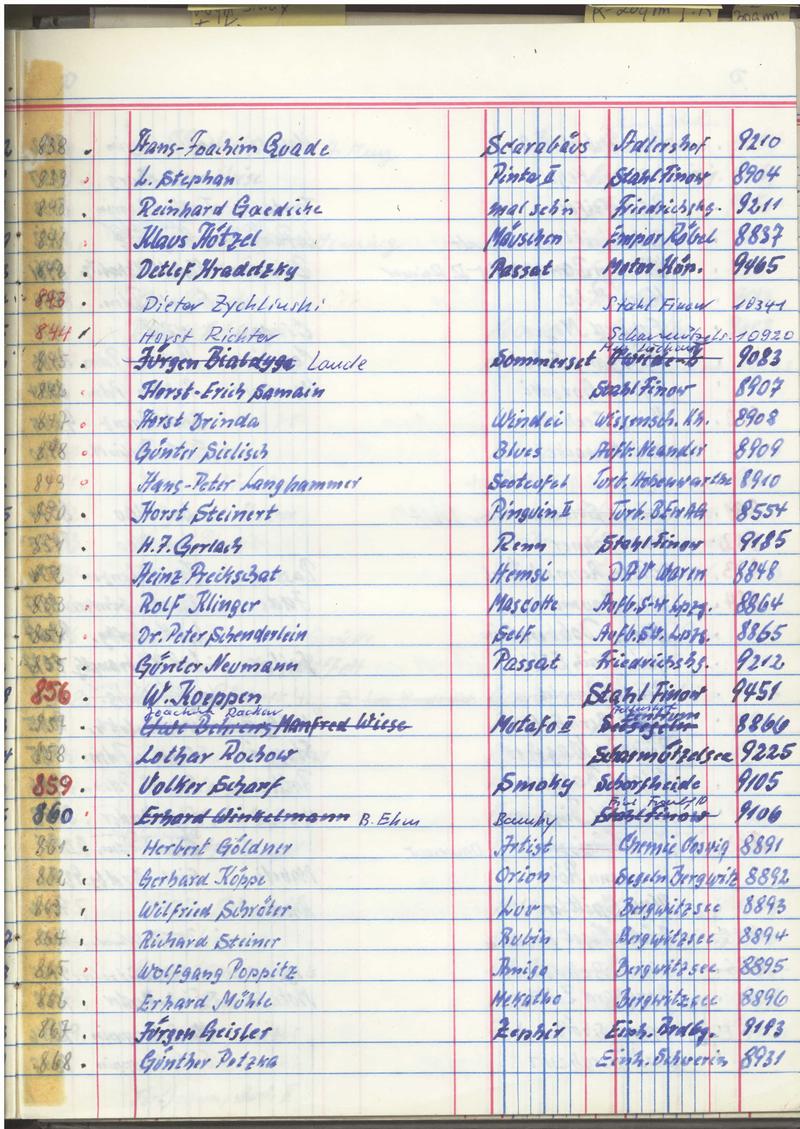 838 . Hans-Joachim Quade Scarabäus Adlershof 9210
839 . L. Stephan Pinta II Stahl Finow 8904
840 . Reinhard Gaedicke mal sehn Friedrichshg. 9211
841 . Klaus Hötzel Mäuschen Empor Röbel 8837
842 . Detlef Hradetzky Passat Motor Köp. 9465
843 Dieter Zychlinski Stahl Finow 10341
844 Horst Richter Scharmützels. 10920
845 . Jürgen Laude Sommerset 9083
846 . Horst-Erich Samain Stahl Finow 8907
847 . Horst Drinda Windei Wissensch. Kh. 8908
848 . Günter Sielisch Blues Aufb. Neander 8909
849 . Hans-Peter Langhammer Seeteufel Turb. Hohenwarthe 8910
850 . Horst Steinert Pinguin II Turb. 8554
851 . H.J. Gerlach Renn Stahl Finow 9185
852 . Heinz Preikschat Hemsi DAV Waren 8848
853 . Rolf Klinger Mascotte Aufb. S-W. Lpzg. 8864
854 . Dr. Peter Schenderlein Self Aufb. SW. Lpzg. 8865
855 . Günter Neumann Passat Friedrichshg. 9212
856 . W. Koeppen Stahl Finow 9451
Joachim Rackow
857 . Uwe Behrens Manfred Wiese Motafo II 8866
858 . Lothar Rochow Scharmützelsee 9225
859 . Volker Scharf Smoky Schorfheide 9105
860 . Erhard Winkelmann B. Ehm Stahl Finow 9106
861 . Herbert Göldner Artist Chemie Coswig 8891
862 . Gerhard Köppe Orion Segeln Bergwitz 8892
863 . Wilfried Schröter Luv Bergwitzsee 8893
864 . Richard Steiner Rubin Bergwitzsee 8894
865 . Wolfgang Poppitz Amiga Bergwitzsee 8895
866 . Erhard Möhle Hekatho Bergwitzsee 8896
867 . Jürgen Geisler Zephir Einh. Brdbg. 9193
868 . Günther Petzka Einh. Schwerin 8931